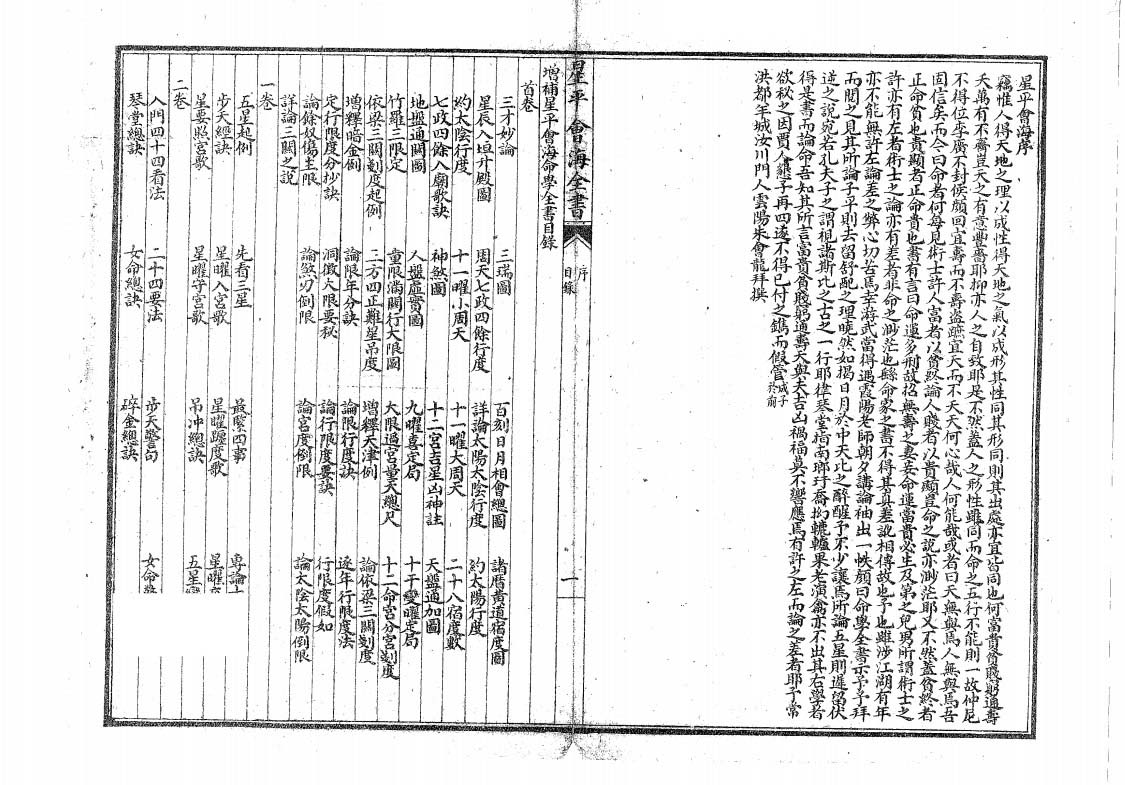 星平會海序
竊惟人得天地之理以成性得天地之氣以成形其性同其形同則其出處亦宜皆同也何富貴貧賤窮通壽
夭萬有不齊豈天之有意豐嗇耶抑亦人之自致耶是不然蓋人之形性雖同而命之五行不能則一故仲尼
不得位李廣不封侯顏回宜壽而不壽盜蹠宜夭而不夭天何心哉人何能哉或者曰天無與焉人無與焉吾
固信矣而今曰命者何每見術士許人富者以貧終論人賤者以貴顯豈命之說亦渺茫耶又不然蓋貧終者
正命貧也貴顯者正命貴也書有言曰命運多刑故招無壽之妻妾命運當貴必生及第之兒男所謂術士之
許亦有左者術士之論亦有差者非命之渺茫也繇命家之書不得其真差訛相傳故也予也雖涉江湖有年
亦不能無許左論差之弊心切苦焉幸游武當得遇霞陽老師朝夕講論袖出一帙顏曰命學全書示予予拜
而閱之見其所論子平則去留舒配之理曉然如揭日月於中天比之醉醒子不少讓焉所論五星則遲留伏
逆之說宛若孔夫子之謂視諸斯比之古之一行耶律琴堂指南瑯玕喬拗轆轤果老演禽亦不出其右學者
得是書而論命吾知其所言富貴貧賤窮通壽夭與夫吉凶禍福莫不響應焉有許之左而論之差者耶予常
欲秘之因賈人懇予再四遂不得已付之鐫而假管
成子
於前
洪都年城汝川門人雲陽朱會龍拜撰
星平會海全書
序
目錄
一
增補星平會海命學全書目錄
首卷
三才妙論 三瑞圖 百刻日月相會總圖 諸曆黃道宿度圖
星辰入垣升殿圖 周天七政四餘行度 詳論太陽太陰行度 約太陽行度
約太陰行度 十一曜小周天 十一曜大周天 二十八宿度數
七政四餘入廟歌訣 神煞圖 十二宮吉星凶神註 天盤通加圖
地盤通關圖 人盤虛實圖 九曜喜定局 十干變曜定局
竹羅三限定 童限滿關行大限圖 大限過宮量天總尺 十二命宮分宮刻度
依梁三關刻度起例 三方四正難星吊度 增釋天津例 論依梁三關刻度
增釋暗金例 論限年分訣 論限行度訣 逐年行限度法
定行限度分抄訣 洞微大限要秘 論行限度要訣 行限度假如
論餘奴傷主限 論煞刃倒限 論宮度倒限 論太陰太陽倒限
詳論三關之說
一卷
五星起例 先看三星 最緊四事 專論
步天經訣 星曜入宮歌 星曜躔度歌 星曜
星要照宮歌 星曜守宮歌 吊冲總訣 五星
二卷
入門四十四看法 二十四要法 步天警句 女命
琴堂總訣 女命總訣 碎金總訣